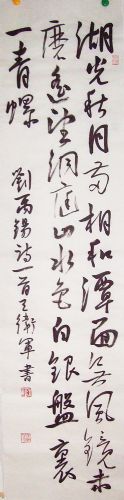 湖光秋月两相和潭面无风镜未
磨遥望洞庭山水色白银盘裏
一青螺
劉禹锡诗一首王衛軍書